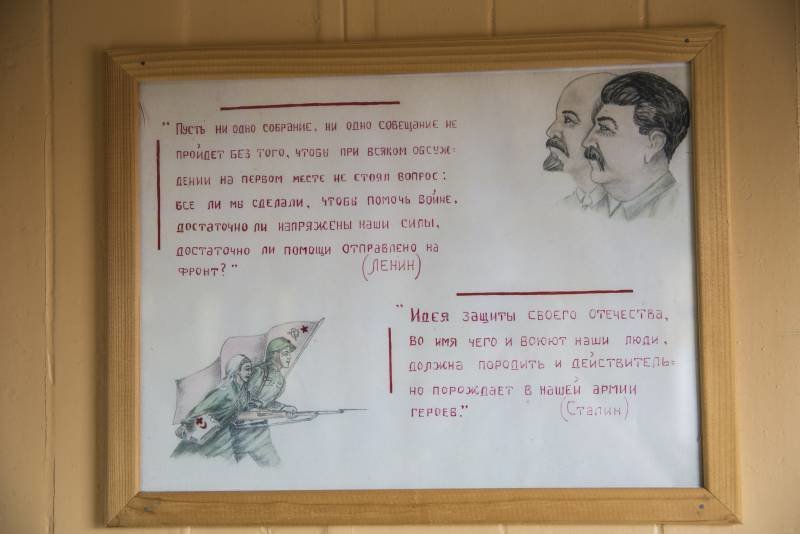 "Пусть ни одно собрание, ни одно совещание не
пройдет без того, чтобы при всяком обсуж-
дении на первом месте не стоял вопрос:
все ли мы сделали, чтобы помочь войне,
достаточно ли напряжены наши силы,
достаточно ли помощи отправлено на
фронт?" (Ленин)
"Идея защиты своего отечества,
во имя чего и воюют наши люди,
должна породить и действитель=
но порождает в нашей армии
героев." (Сталин)